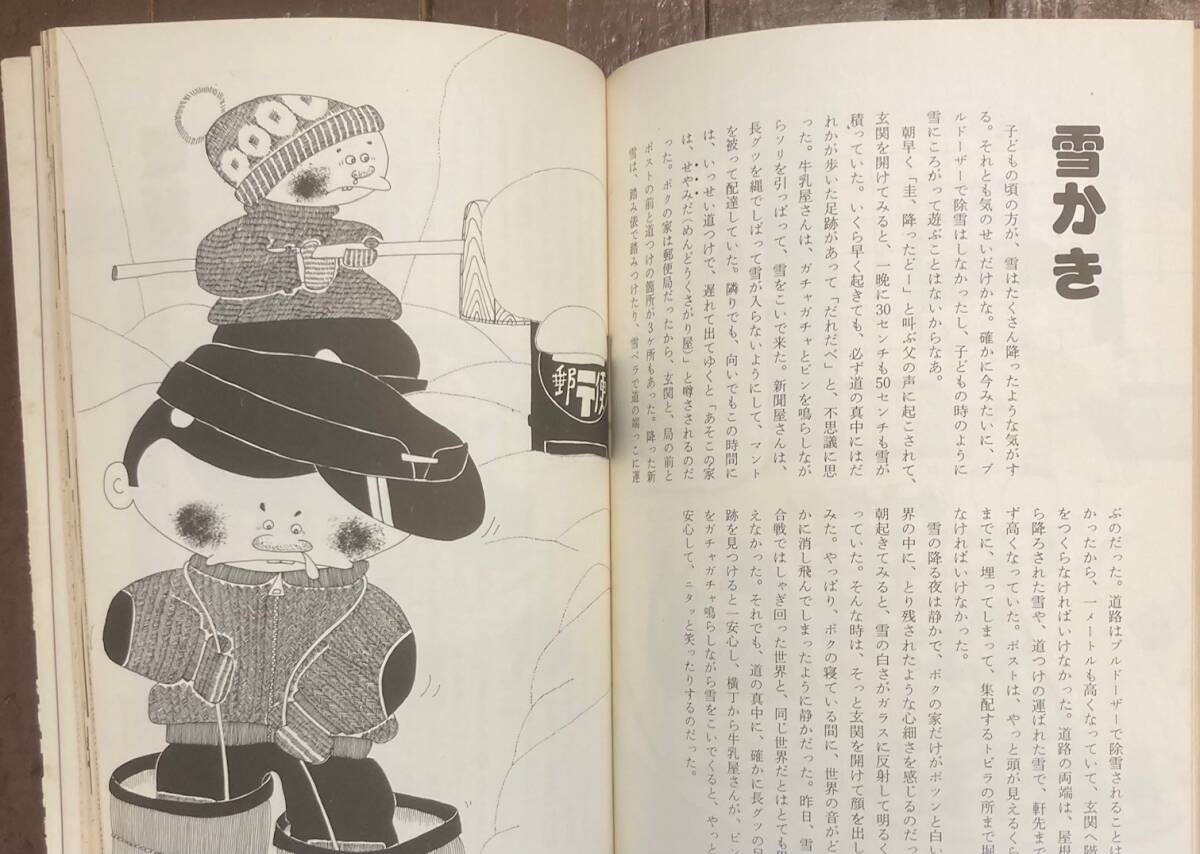 雪かき
子どもの頃の方が、雪はたくさん降ったような気がす
る。それとも気のせいだけかな。確かに今みたいに、ブ
ルドーザーで除雪はしなかったし、子どもの時のように
雪にころがって遊ぶことはないからなあ。
朝早く「圭、降ったどー」と叫ぶ父の声に起こされて、
玄関を開けてみると、一晩に30センチも50センチも雪が
積っていた。いくら早く起きても、必ず道の真中にはだ
れかが歩いた足跡があって「だれだべ」と、不思議に思
った。牛乳屋さんは、ガチャガチャとビンを鳴らしなが
らソリを引っぱって、雪をこいで来た。新聞屋さんは、
長グツを縄でしばって雪が入らないようにして、マント
を被って配達していた。隣りでも、向いでもこの時間に
は、いっせい道つけで、遅れて出てゆくと「あそこの家
は、せやみだ(めんどうくさがり屋)」と噂さされるのだ
った。ボクの家は郵便局だったから、玄関と、局の前と
ポストの前と道つけの箇所が3ヶ所もあった。降った新
雪は、踏み俵で踏みつけたり、雪ベラで道の端っこに運
ぶのだった。道路はブルドーザーで除雪されることは
かったから、一メートルも高くなっていて、玄関へ階
をつくらなければいけなかった。道路の両端は、屋根
ら降ろされた雪や、道つけの運ばれた雪で、軒先まで
ず高くなっていた。ポストは、やっと頭が見えるくら
までに、埋ってしまって、集配するトビラの所まで堀
なければいけなかった。
雪の降る夜は静かで、ボクの家だけがポツンと白い
界の中に、とり残されたような心細さを感じるのだっ
朝起きてみると、雪の白さがガラスに反射して明るく
っていた。そんな時は、そっと玄関を開けて顔を出し
みた。やっぱり、ボクの寝ている間に、世界の音がど
かに消し飛んでしまったように静かだった。昨日、雪
合戦ではしゃぎ回った世界と、同じ世界だとはとても思
えなかった。それでも、道の真中に、確かに長グツの足
跡を見つけると一安心し、横丁から牛乳屋さんが、ビン
をガチャガチャ鳴らしながら雪をこいでくると、やっと
安心して、ニタッと笑ったりするのだった。
郵〒便